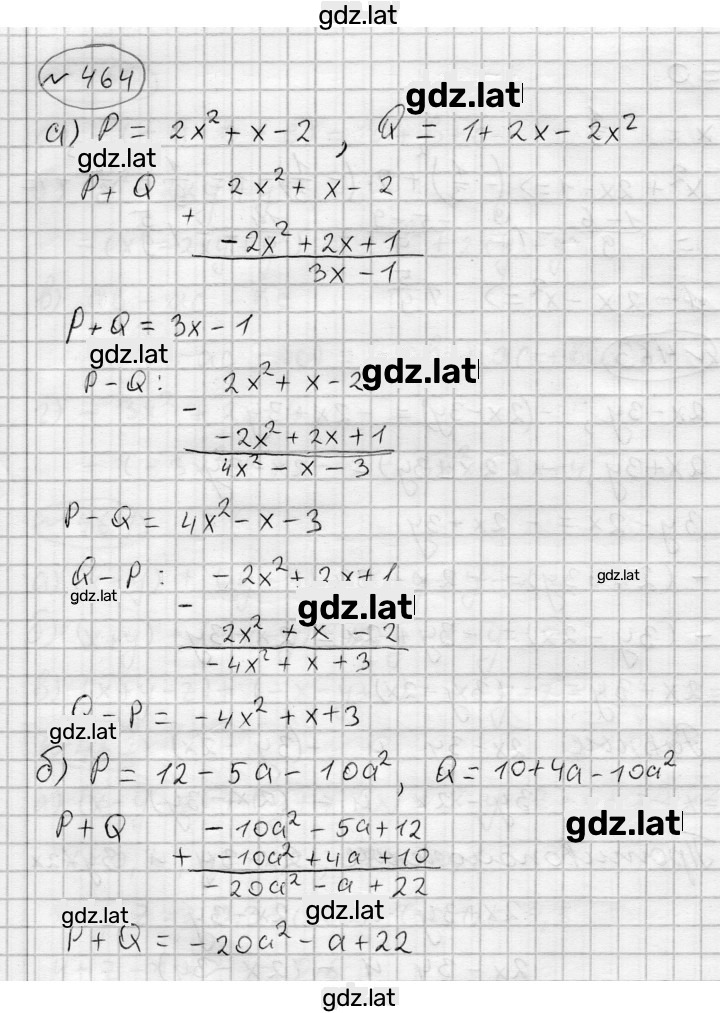 gdz.lat
№ 464
gdz.lat
а) P = 2x² + x - 2 , Q = 1 + 2x - 2x²
gdz.lat
P + Q 2x² + x - 2
+
-2x² + 2x + 1
3x - 1
P + Q = 3x - 1
gdz.lat
P - Q : 2x² + x - 2 gdz.lat
-
-2x² + 2x + 1
4x² - x - 3
P - Q = 4x² - x - 3
Q - P : -2x² + 2x + 1 gdz.lat
gdz.lat
- gdz.lat
2x² + x - 2
-4x² + x + 3
Q - P = -4x² + x + 3
gdz.lat
б) P = 12 - 5a - 10a², Q = 10 + 4a - 10a²
P + Q -10a² - 5a + 12 gdz.lat
+ -10a² + 4a + 10
-20a² - a + 22
gdz.lat gdz.lat
P + Q = -20a² - a + 22
gdz.lat